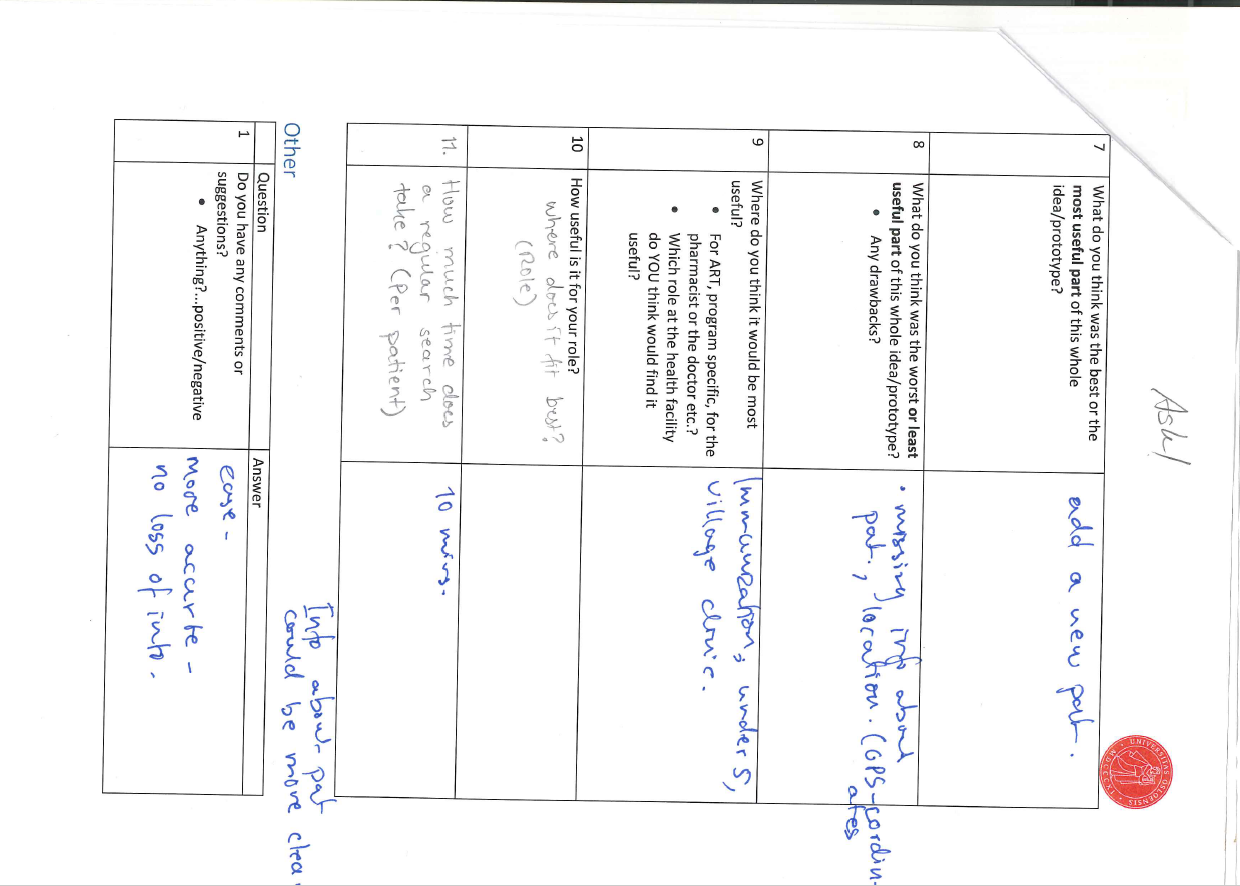 Ash/
UNIVERSITAS OSLOENSIS
MDCCCXI
7
What do you think was the best or the
most useful part of this whole
idea/prototype?
add a new pat.
8
What do you think was the worst or least
useful part of this whole idea/prototype?
• Any drawbacks?
• missing info about
pat., location. (GPS-cordin-
ates
9
Where do you think it would be most
useful?
• For ART, program specific, for the
pharmacist or the doctor etc.?
• Which role at the health facility
do YOU think would find it
useful?
Immunization, under 5,
village clinic.
10
How useful is it for your role?
where does it fit best?
(Role)
11.
How much time does
a regular search
take? (Per patient)
10 mins.
Info about pat
could be more clear
Other
Question
Answer
1
Do you have any comments or
suggestions?
• Anything?...positive/negative
ease -
more accurte -
no loss of info.